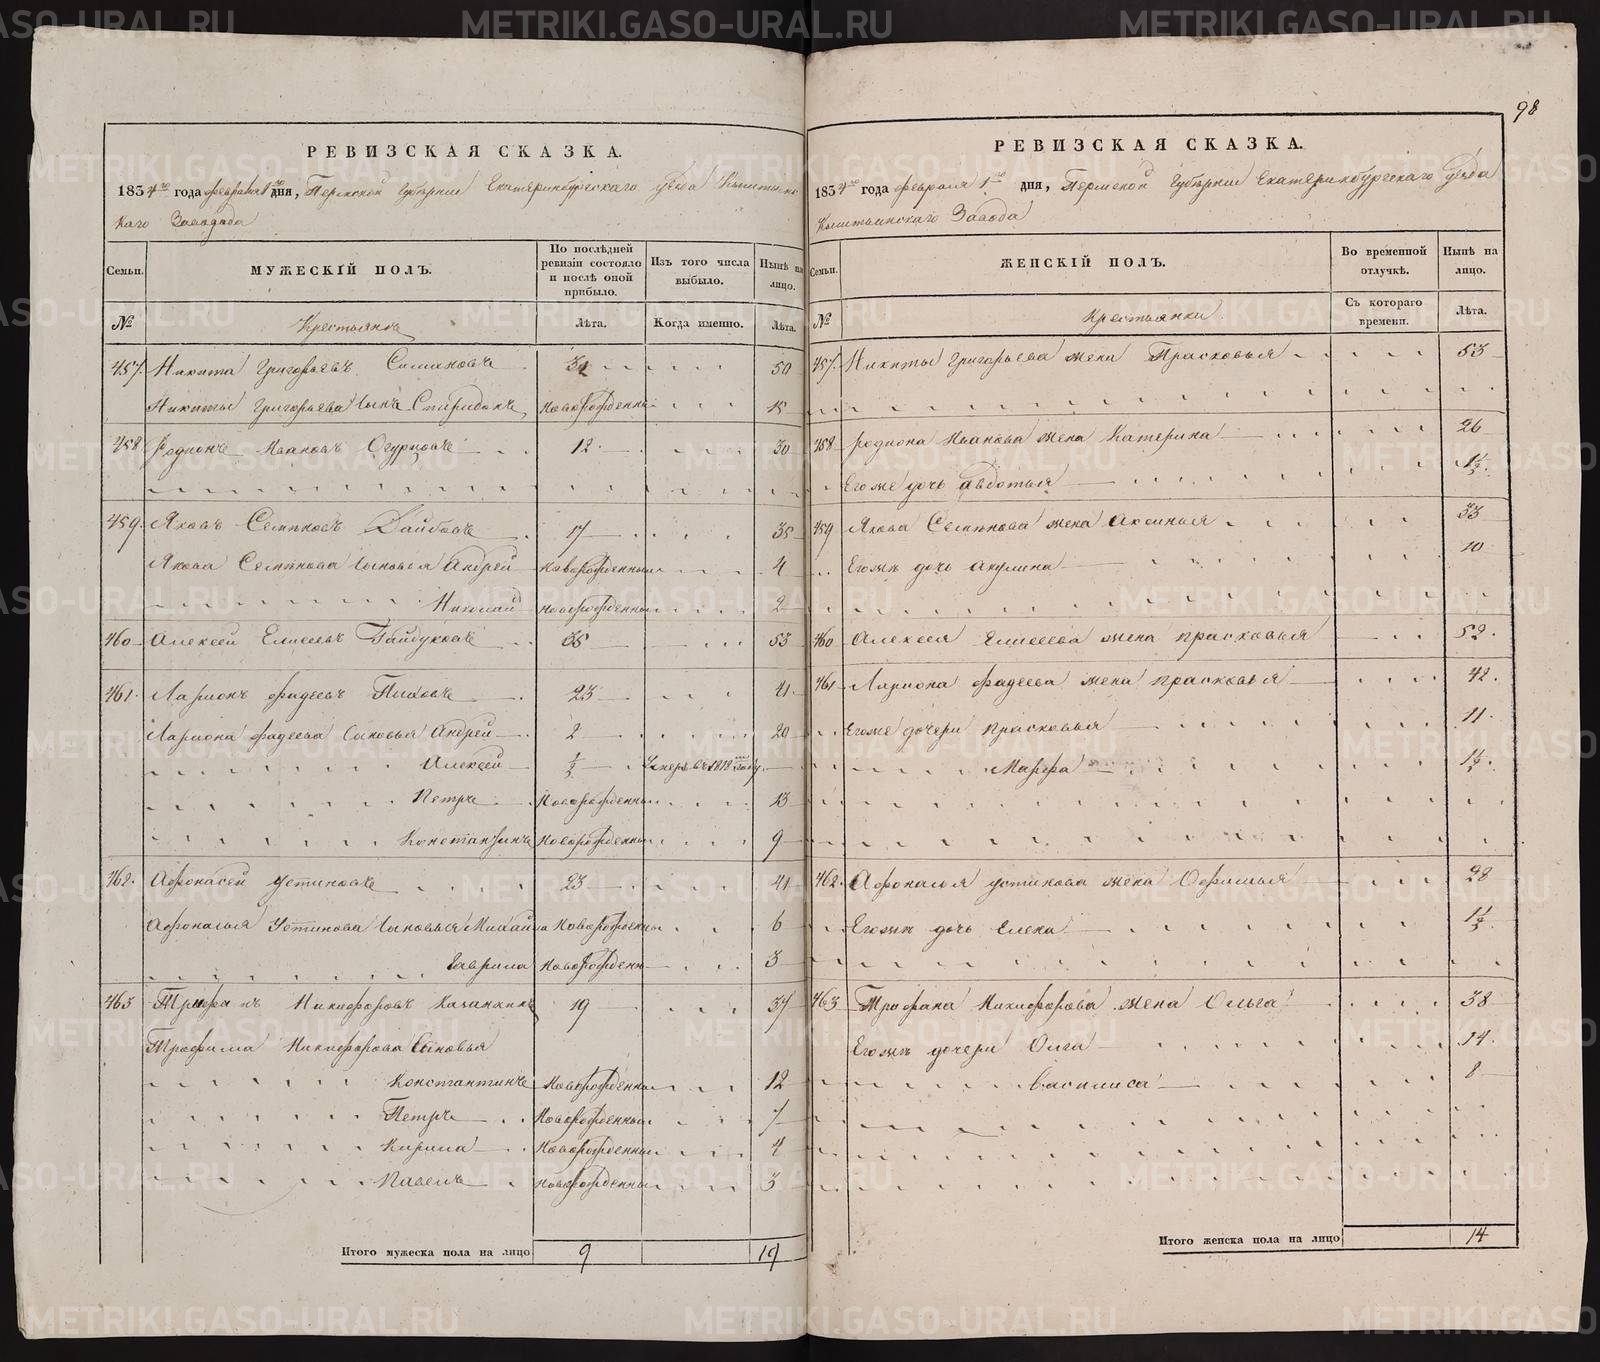 98
РЕВИЗСКАЯ СКАЗКА.
1834го года февраля 1го дня, Пермской Губернiи Екатеринбургскаго уезда Кыштымс
каго Завода
Семьи. МУЖЕСКIЙ ПОЛЪ. По послѣдней ревизiи состояло и послѣ оной прибыло. Изъ того числа выбыло. Нынѣ на лицо.
№ Крестьянъ Лѣта. Когда именно. Лѣта.
457. Никита Григорьевъ 32 50
Никиты Григорьева Сынъ Спиридонъ Новорожденны 15
458 Родионъ Ивановъ Огурцовъ 12 30
459. Яковъ Семеновъ 17 35
Якова Семенова Сыновья Андрей Новорожденныи 4
Николай Новорожденны 2
460 Алексей Елисеевъ Гайдуковъ 35 53
461. Ларионъ Фадеевъ Пиховъ 23 41
Лариона Фадеева Сыновья Андрей 2 20
Алексей 1/2 Умеръ въ 1818 году.
Петръ Новорожденны 13
Константинъ Новорожденны 9
462. Афонасей Устиновъ 23 41
Афонасья Устинова Сыновья Михайла Новорожденны 6
Гаврила Новорожденн 3
463 Никифоровъ 19 37
Трофима Никифорова Сыновья
Константинъ Новорожденны 12
Петръ Новорожденныи 7
Кирила Новорожденны 4
Павелъ Новорожденны 3
Итого мужеска пола на лицо 9 19
РЕВИЗСКАЯ СКАЗКА.
1834го года февраля 1го дня, Пермской Губернiи Екатеринбургскаго уезда
Кыштымскаго Завода
Семьи. ЖЕНСКIЙ ПОЛЪ. Во временной отлучкѣ. Нынѣ на лицо.
№ Крестьянки. Съ котораго времени. Лѣта.
457. Никиты Григорьева жена Прасковья 53
458 Родиона Иванова жена Катерина 26
Егоже дочь Авдотья 1 1/2
459 Якова Семенова жена Аксинья 33
Егоже дочь Акулина 10
460 Алексея Елисеева жена Прасковья 52
461 Лариона Фадеева жена Прасковья 42
Егоже дочери Прасковья 11
Марфа 1 1/2
462. Афонасья Устинова жена Офимья 28
Егоже дочь Елена 1 1/2
463 Трофана Никифорова жена Ольга 38
Егоже дочери Олга 14
Василиса 8
Итого женска пола на лицо 14